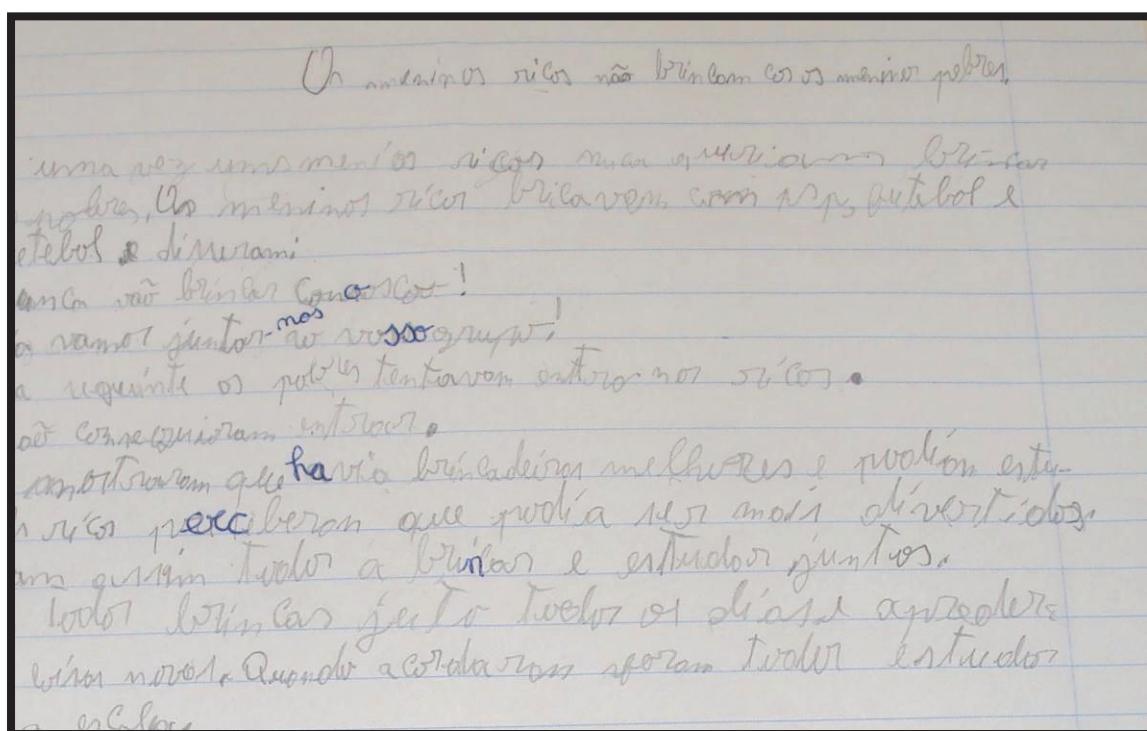 Os meninos ricos não brincam cos os meninos pobres.
uma vez uns menios ricos queriam brincar
pobres, Os meninos ricos bricavem com psp, futebol e
etebol e disseram:
não brincar conoscoo!
vamos juntar-nos ao vosso grupo!
a seguinte os pobres tentavam entrar nos ricos.
conseguiram entrar.
amostraram que havia brincadeiras melhores e podion estu-
ricos perceberan que podia ser mais divertidos.
assim todos a brincar e estudar juntos.
todos brincar juto todos os dias e aprender
eiras novas. Quando acordaram foram todos estudar